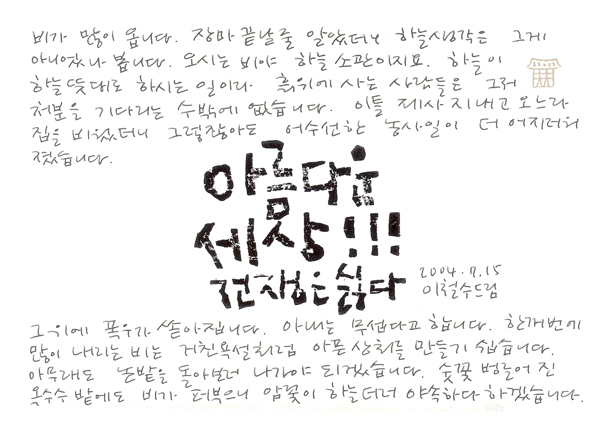 비가 많이 옵니다. 장마 끝날줄 알았더니 하늘생각은 그게
아니었나 봅니다. 오시는 비야 하늘 소관이지요. 하늘이
하늘뜻대로 하시는 일이라 흙위에 사는 사람들은 그저
처분을 기다리는 수밖에 없습니다. 이틀 제사 지내고 오느라
집을 비웠더니 그렇잖아도 어수선한 농사일이 더 어지러워
졌습니다.
아름다운
세상!!!
전쟁은싫다
2004.7.15
이철수드림
그 위에 폭우가 쏟아집니다. 아내는 무섭다고 합니다. 한꺼번에
많이 내리는 비는 거친욕설처럼 아픈 상처를 만들기 쉽습니다.
아무래도 논밭을 돌아보러 나가야 되겠습니다. 숫꽃 벙글어 진
옥수수 밭에도 비가 퍼부으니 암꽃이 하늘더러 야속하다 하겠습니다.